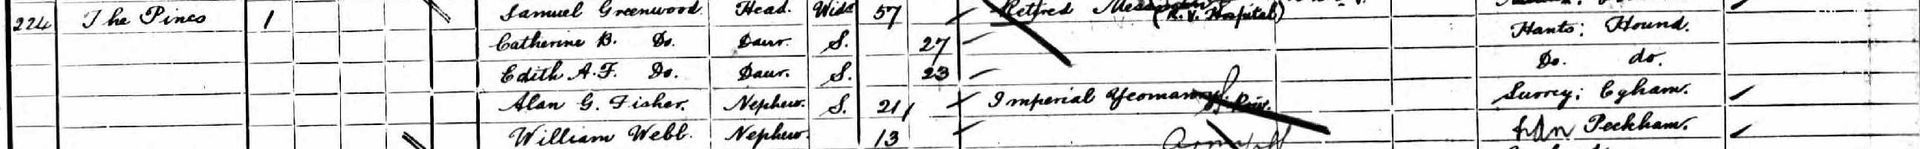 224 The Pines 1 Samuel Greenwood Head. Widr 57 Retired Messenger (R. V. Hospital)
Catherine B. Do. Daur. S. 27 Hants: Hound.
Edith A. F. Do. Daur. S. 23 Do. do.
Alan G. Fisher. Nephew. S. 21 Imperial Yeomanry Surrey; Egham.
William Webb. Nephew. 13 Peckham.